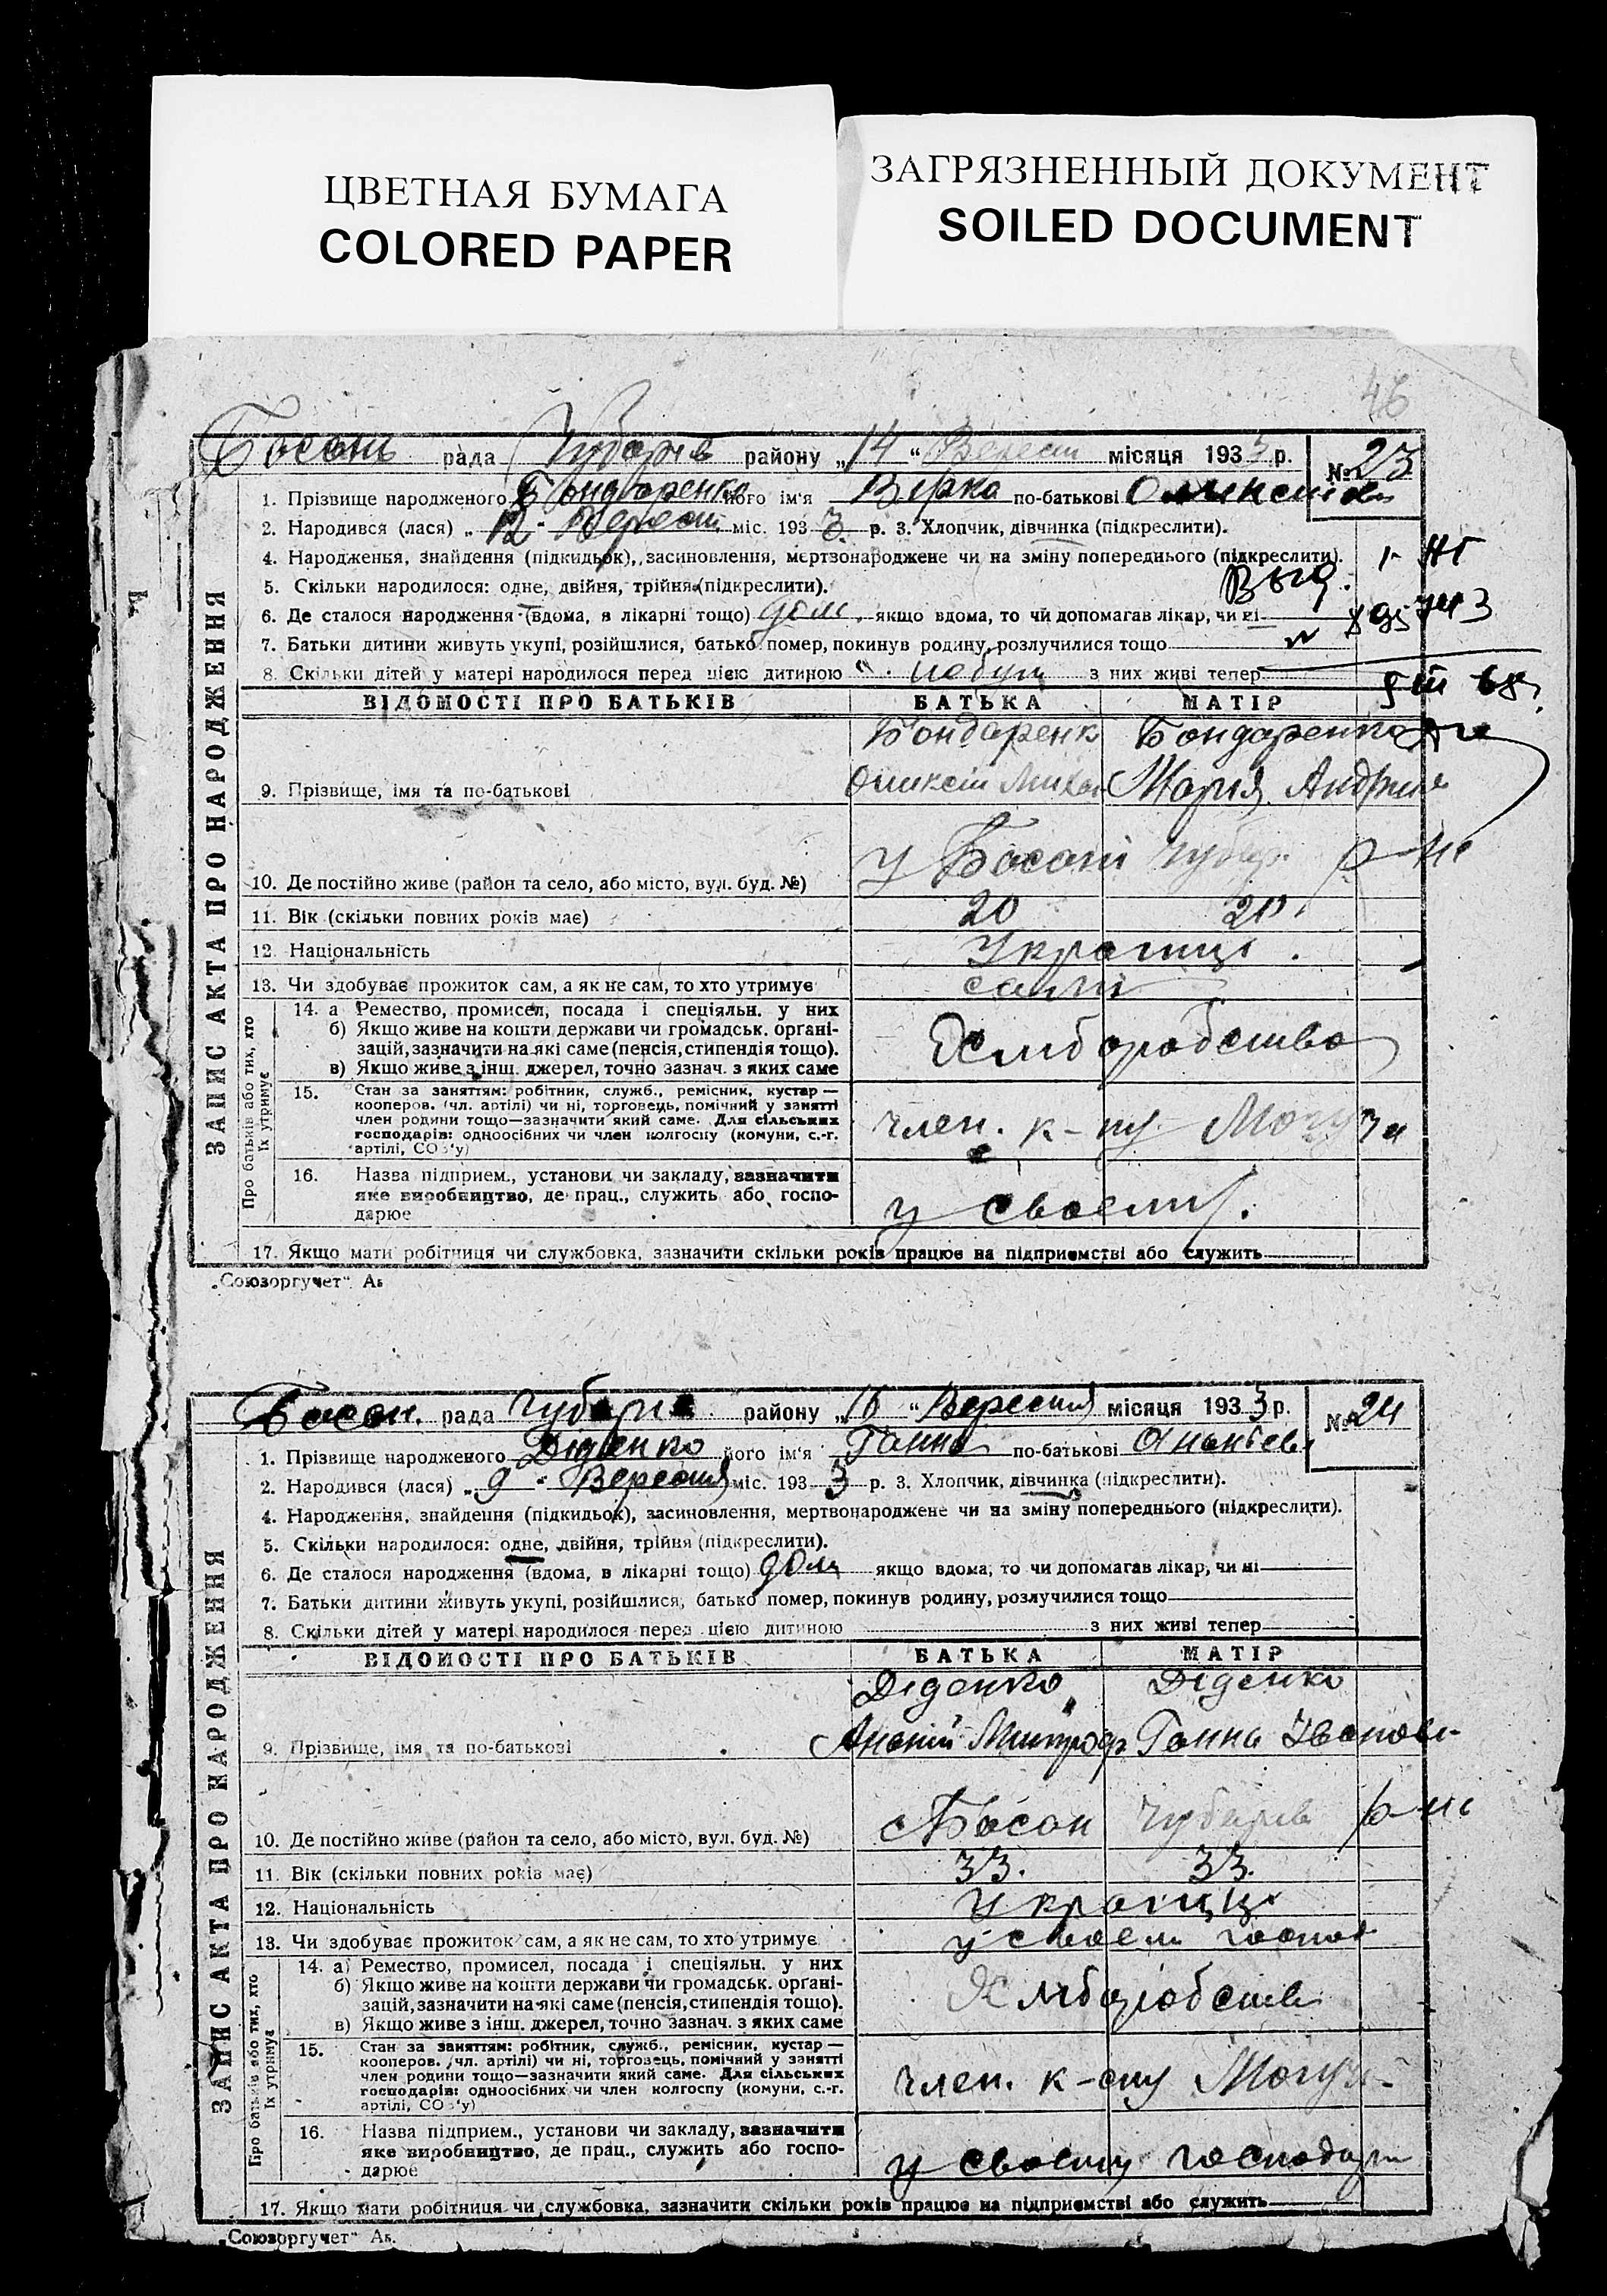 ЦВЕТНАЯ БУМАГА
COLORED PAPER
ЗАГРЯЗНЕННЫЙ ДОКУМЕНТ
SOILED DOCUMENT
46
Босань рада Чубарів району „14“ Вересн місяця 1933 р. № 23
ЗАПИС АКТА ПРО НАРОДЖЕННЯ
1. Прізвище народженого Бондаренко його ім'я Вірка по-батькові
2. Народився (лася) „12“ Вересн міс. 1933 р. 3. Хлопчик, дівчинка (підкреслити).
4. Народження, знайдення (підкидьок), засиновлення, мертвонароджене чи на зміну попереднього (підкреслити).
5. Скільки народилося: одне, двійня, трійня (підкреслити).
6. Де сталося народження (вдома, в лікарні тощо) дом якщо вдома, то чи допомагав лікар, чи ні
7. Батьки дитини живуть укупі, розійшлися, батько помер, покинув родину, розлучилися тощо
8. Скільки дітей у матері народилося перед цією дитиною з них живі тепер
ВІДОМОСТІ ПРО БАТЬКІВ БАТЬКА МАТІР
Бондаренк Бондаренко
9. Прізвище, імя та по-батькові Мария
10. Де постійно живе (район та село, або місто, вул. буд. №) у Босані Чубар. р-ні
11. Вік (скільки повних років має) 20 20
12. Національність Українці.
13. Чи здобуває прожиток сам, а як не сам, то хто утримує сами
Про батьків або тих, хто їх утримує
14. а Ремество, промисел, посада і спеціяльн. у них
б) Якщо живе на кошти держави чи громадськ. органі-
зацій, зазначити на які саме (пенсія, стипендія тощо).
в) Якщо живе з інш. джерел, точно зазнач. з яких саме
15. Стан за заняттям: робітник, служб., ремісник, кустар —
кооперов. (чл. артілі) чи ні, торговець, помічний у занятті
член родини тощо—зазначити який саме. Для сільських
господарів: одноосібних чи член колгоспу (комуни, с.-г.
артілі, СОЗ'у)
член. к-пу
16. Назва підприєм., установи чи закладу, зазначити
яке виробництво, де прац., служить або госпо-
дарює у своему.
17. Якщо мати робітниця чи службовка, зазначити скільки років працює на підприємстві або служить
„Союзоргучет“ Ак
Босан. рада Чубарів району „16“ Вересня місяця 1933 р. № 24
ЗАПИС АКТА ПРО НАРОДЖЕННЯ
1. Прізвище народженого Діденко його ім'я Ганна по-батькові Ананіев
2. Народився (лася) „9“ Вересня міс. 1933 р. 3. Хлопчик, дівчинка (підкреслити).
4. Народження, знайдення (підкидьок), засиновлення, мертвонароджене чи на зміну попереднього (підкреслити).
5. Скільки народилося: одне, двійня, трійня (підкреслити).
6. Де сталося народження (вдома, в лікарні тощо) дом якщо вдома, то чи допомагав лікар, чи ні
7. Батьки дитини живуть укупі, розійшлися, батько помер, покинув родину, розлучилися тощо
8. Скільки дітей у матері народилося перед цією дитиною з них живі тепер
ВІДОМОСТІ ПРО БАТЬКІВ БАТЬКА МАТІР
Діденко Діденко
9. Прізвище, імя та по-батькові Ананій Митроф Ганна Іванов
10. Де постійно живе (район та село, або місто, вул. буд. №) с Босан Чубарів р-ні
11. Вік (скільки повних років має) 33. 33.
12. Національність Українці
13. Чи здобуває прожиток сам, а як не сам, то хто утримує у своем госпо
Про батьків або тих, хто їх утримує
14. а) Ремество, промисел, посада і спеціяльн. у них
б) Якщо живе на кошти держави чи громадськ. органі-
зацій, зазначити на які саме (пенсія, стипендія тощо).
в) Якщо живе з інш. джерел, точно зазнач. з яких саме
15. Стан за заняттям: робітник, служб., ремісник, кустар —
кооперов. (чл. артілі) чи ні, торговець, помічний у занятті
член родини тощо—зазначити який саме. Для сільських
господарів: одноосібних чи член колгоспу (комуни, с.-г.
артілі, СОЗ'у)
член. к-спу
16. Назва підприєм., установи чи закладу, зазначити
яке виробництво, де прац., служить або госпо-
дарює у своему господар
17. Якщо мати робітниця чи службовка, зазначити скільки років працює на підприємстві або служить
„Союзоргучет“ Ак.